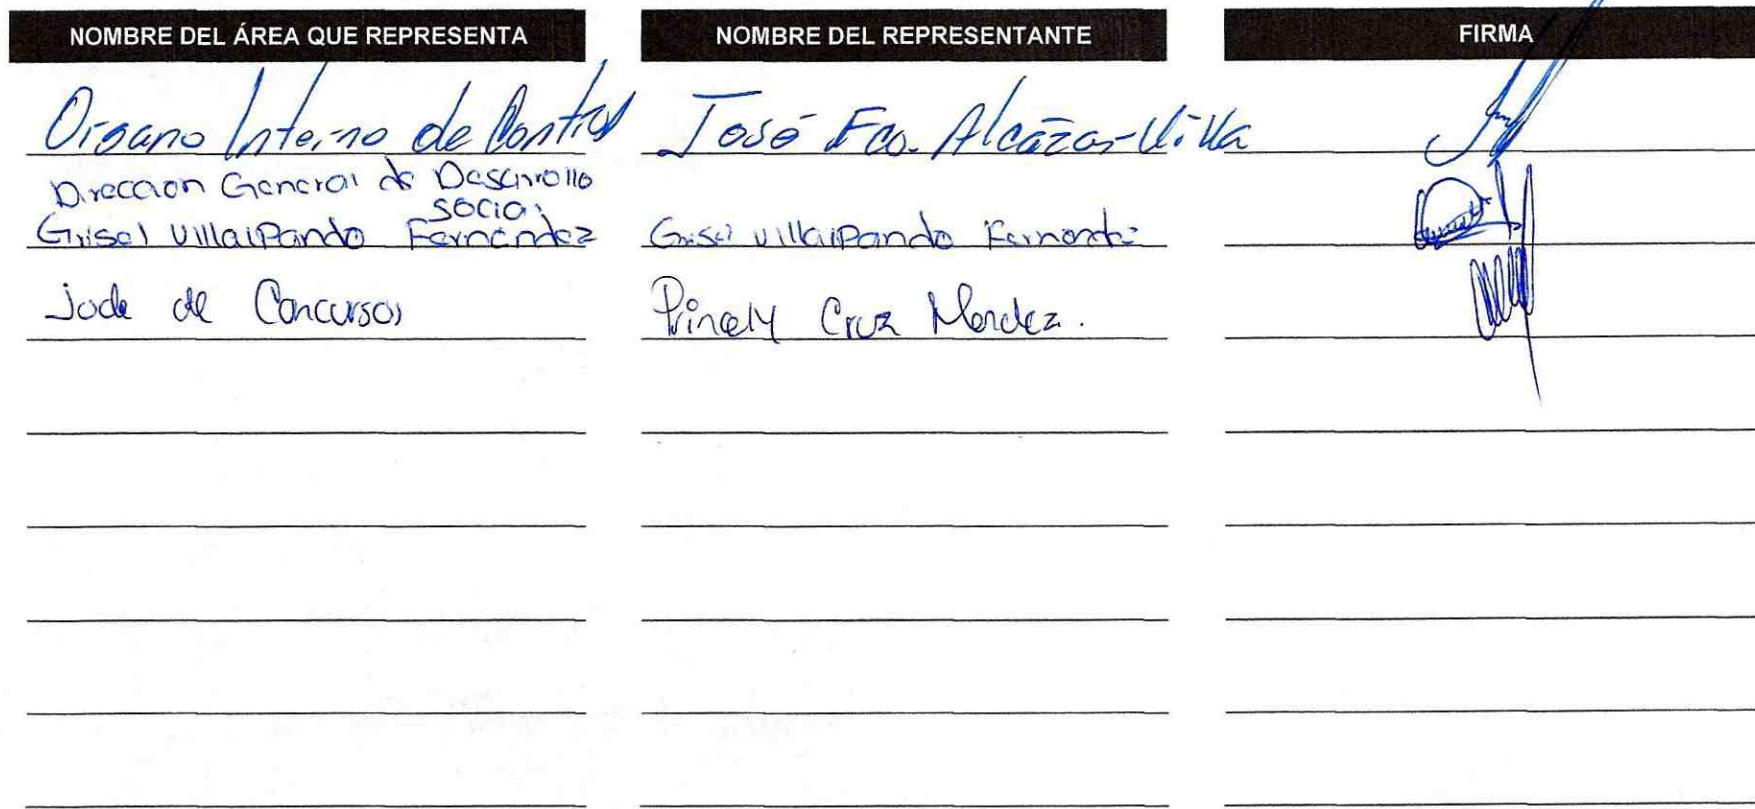 NOMBRE DEL ÁREA QUE REPRESENTA NOMBRE DEL REPRESENTANTE FIRMA
Órgano Interno de Control José Fco. Alcázar Villa
Dirección General de Desarrollo
Social
Grisel Villalpando Fernández Grisel Villalpando Fernandez
Jude de Concursos Princely Cruz Mendez.